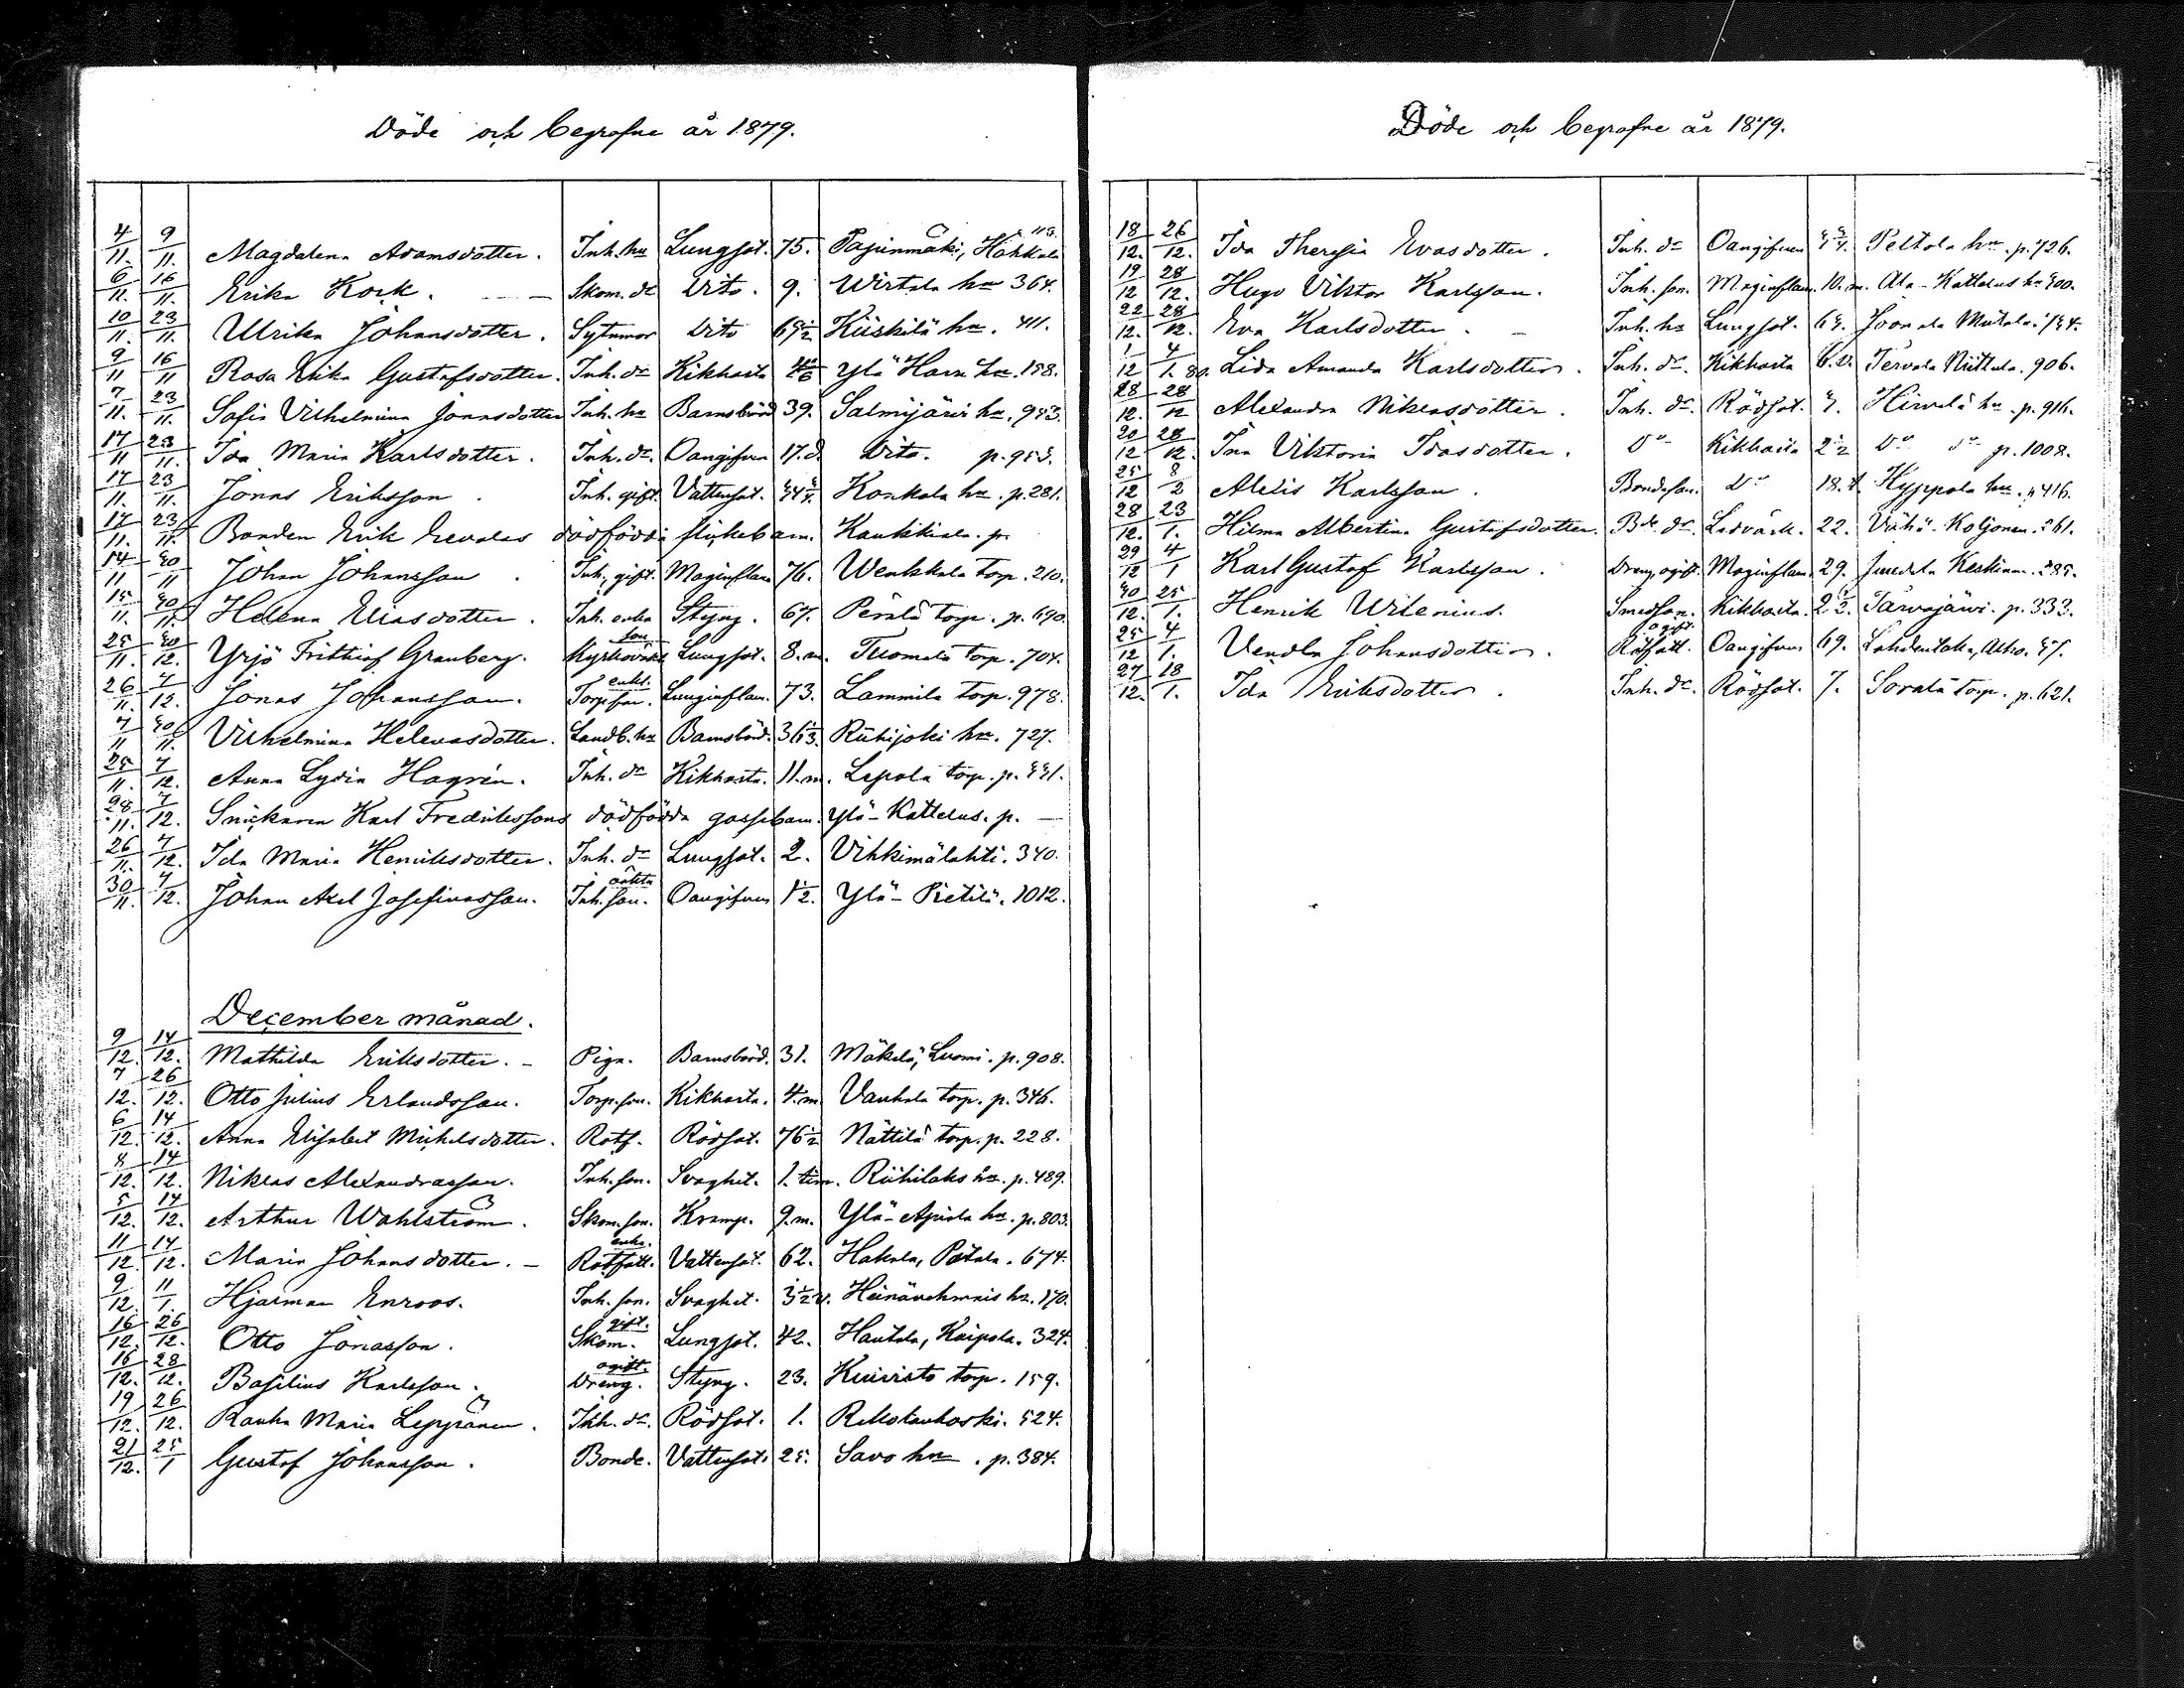 Döde och begrafne år 1879.
4/11. 9/11. Magdalena Adamsdotter. Inh. hu Lungsot. 75. Pajunmäki, Hähkälä 118.
6/11. 16/11. Erika Kock. Skom. dr Dito. 9. Wirtala hm 364.
10/11. 23/11. Ulrika Johansdotter. Sytnmor Dito 69 1/2 Kiiskilä hm. 411.
9/11 16/11 Rosa Erika Gustafsdotter. Inh. dr Kikhosta Ylä Hara hm. 158.
7/11. 23/11. Sofia Vilhelmina Jonasdotter Inh. hu Barnsbörd 39. Salmijärvi hm. 953.
17/11 23/11. Ida Maria Karlsdotter. Inh. dr. Oangifven 17. d. Dito. p. 953.
17/11. 23/11. Jonas Eriksson. Inh. gift. Vattensot. Konkala hm. p. 281.
17/11. 23/11. Bonden Erik Eevalas dödfödda flickebarn. Kaukkiala. p.
14/11 30/11 Johan Johansson. Inh. gift. Maginflam 76. Wenkkala torp. 210.
15/11. 30/11. Helena Eliasdotter. Inh. enka Styng. 67. Perälä torp. p. 690.
25/11. 30/12. Yrjö Frithiof Granberg. Kyrkovakt. son Lungsot. 8. m. Tuomala torp. 704.
26/11. 7/12. Jonas Johansson. Torpfar. enkl. Lunginflam. 73. Lammila torp. 978.
7/11 30/11. Vilhelmina Helenasdotter. Landb. hu Barnsbörd. 36 1/3. Riihijoki hm. 727.
25/11. 7/12. Anna Lydia Hagrén. Inh. dr Kikhosta. 11. m. Lepola torp. p. 551.
28/11. 7/12. Snickaren Karl Fredrikssons dödfödda gossebarn. Ylä-Kattelus. p. —
26/11. 7/12. Ida Maria Henriksdotter. Inh. dr Lungsot. 2. Vihkimälahti. 340.
30/11. 7/12. Johan Axel Josefinasson. Inh. oäkta son. Oangifven 1 1/2. Ylä-Pietilä. 1012.
December månad.
9/12. 14/12. Mathilda Eriksdotter. Piga. Barnsbörd. 31. Mäkelä, Luomi. p. 908.
7/12. 26/12. Otto Julius Erlandsson. Torp. son. Kikhosta. 4. m. Vanhala torp. p. 346.
6/12. 14/12. Anna Elisabet Michelsdotter. Rotf. Rödsot. 76 1/2 Nättilä torp. p. 228.
8/12. 14/12. Niklas Alexandrasson. Inh. son. Svaghet. 1. tim. Riihilaks hm. p. 489.
5/12. 14/12. Arthur Wahlström. Skom. son. Kramp. 9. m. Ylä-Apiala hm. p. 803.
11/12. 14/12. Maria Johansdotter. Rotfatt. enka. Vattensot. 62. Hakala, Pätälä. 674.
9/12. 11/1. Hjarmar Enroos. Inh. son. Svaghet. 3 1/2 v. Heinävehmais hm. 170.
16/12. 26/12. Otto Jonasson. Skom. gift. Lungsot. 42. Hautala, Kaipola. 324.
16/12. 28/12. Basilius Karlsson. Dreng. ogift. Styng. 23. Kuivisto torp. 159.
19/12. 26/12. Rauha Maria Leppänen. Inh. dr. Rödsot. 1. Rekolankoski. 524.
21/12. 25/1 Gustaf Johansson. Bonde. Vattensot. 25. Savo hm. p. 384.
Döde och begrafne år 1879.
18/12. 26/12. Ida Theresia Evasdotter. Inh. dr Oangifven Peltola hm. p. 726.
19/12 28/12. Hugo Viktor Karlsson. Inh. son. Maginflam. 10. m. Ala-Kattelus hm 500.
22/12. 28/12. Eva Karlsdotter. Inh. hu Lungsot. 65. Joonala Mutala.
1/12 4/1. 80. Lida Amanda Karlsdotter. Inh. dr. Kikhosta 6. v. Tervala Niittula. 906.
28/12. 28/12 Alexandra Niklasdotter. Inh. dr. Rödsot. 5. Hirvelä hm. p. 916.
20/12 28/12. Ina Viktoria Idasdotter. Do Kikhosta 2 1/2 Do do p. 1008.
25/12 8/2 Alexis Karlsson. Bondeson. Do 18. d. Hyppola hm. p 416.
28/12. 23/1. Hilma Albertina Gustafsdotter. Bde. dr. Ledvärk. 22. Vähä-Koljonen. 261.
29/12 4/1 Karl Gustaf Karlsson. Dreng, ogift. Maginflam. 29. Junedela Keskinen. 285.
30/12. 25/1. Henrik Wilenius. Smedson. Kikhosta. Tarvajärvi. p. 333.
25/12 4/1. Vendla Johansdotter. Rotfatt. ogift. Oangifven 69. Lahdentaka, Atho. 57.
27/12. 18/1. Ida Eriksdotter. Inh. dr. Rödsot. 7. Sorala torp. p. 621.